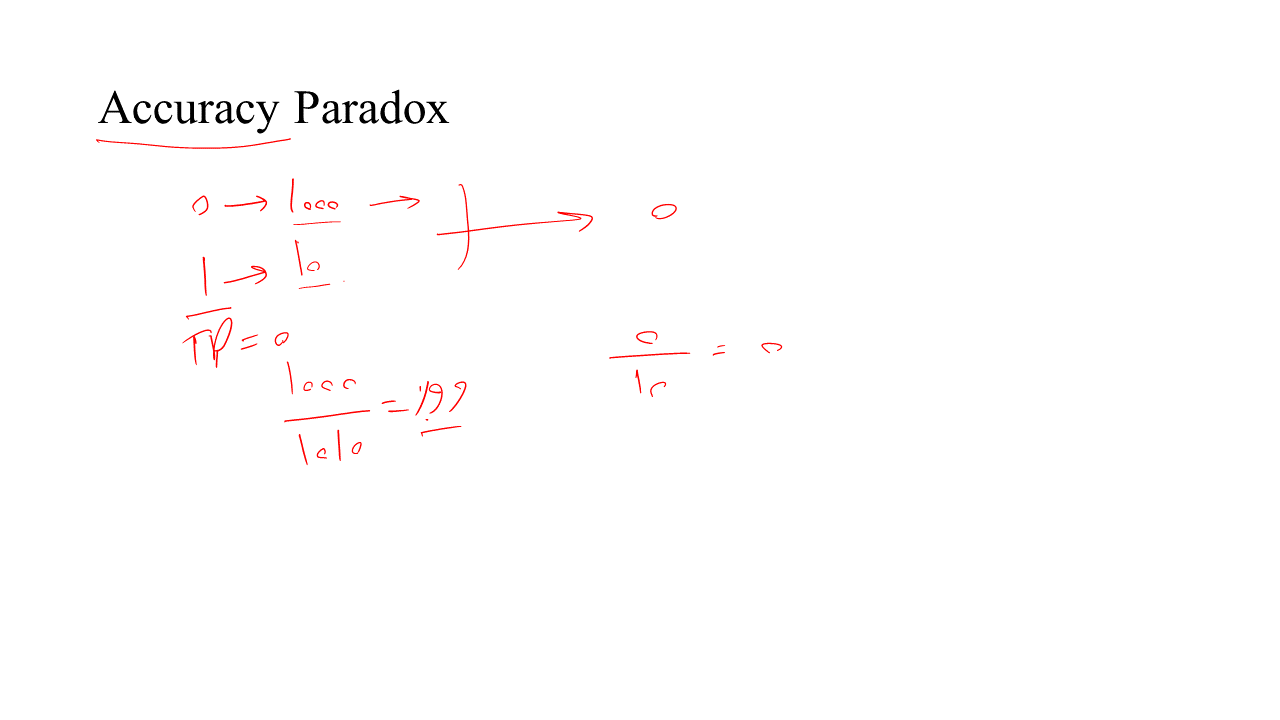 Accuracy Paradox
0 → 1000 → 0
1 → 10
TP = 0
1000 / 1010 = %99
0 / 10 = 0